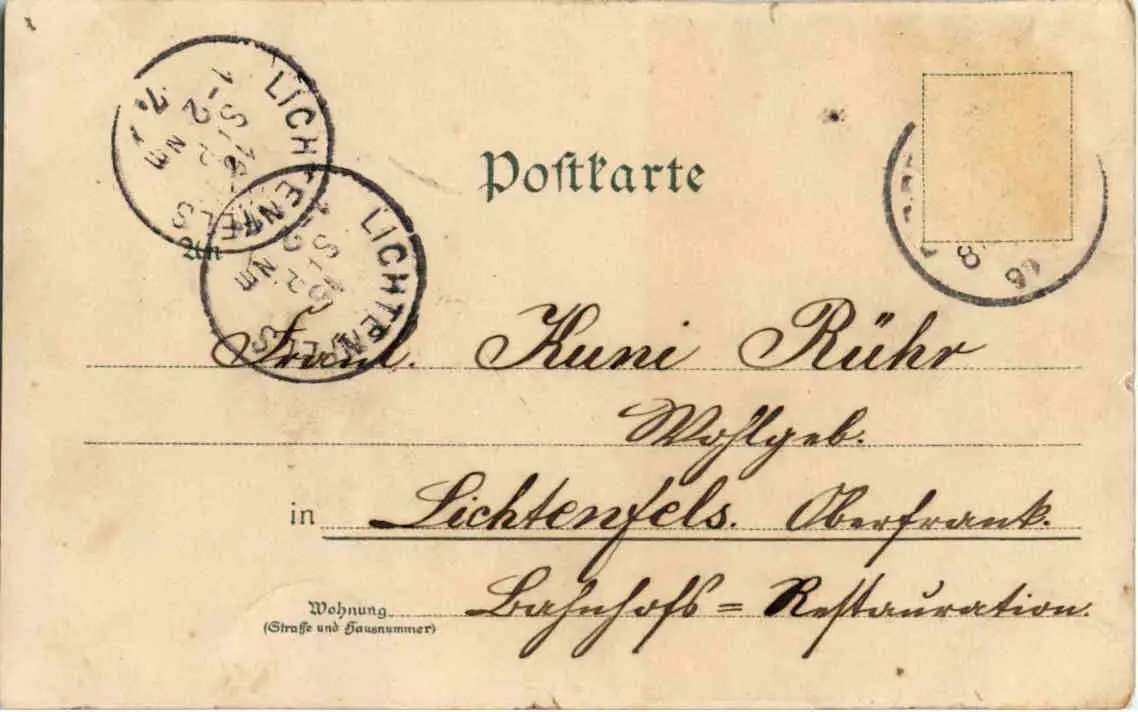 Postkarte
LICHTENFELS
LICHTENFELS
An
Fräul. Kuni Rühr
Wohlgeb.
in Lichtenfels. Oberfrank.
Wohnung Bahnhofs = Restauration.
(Straße und Hausnummer)